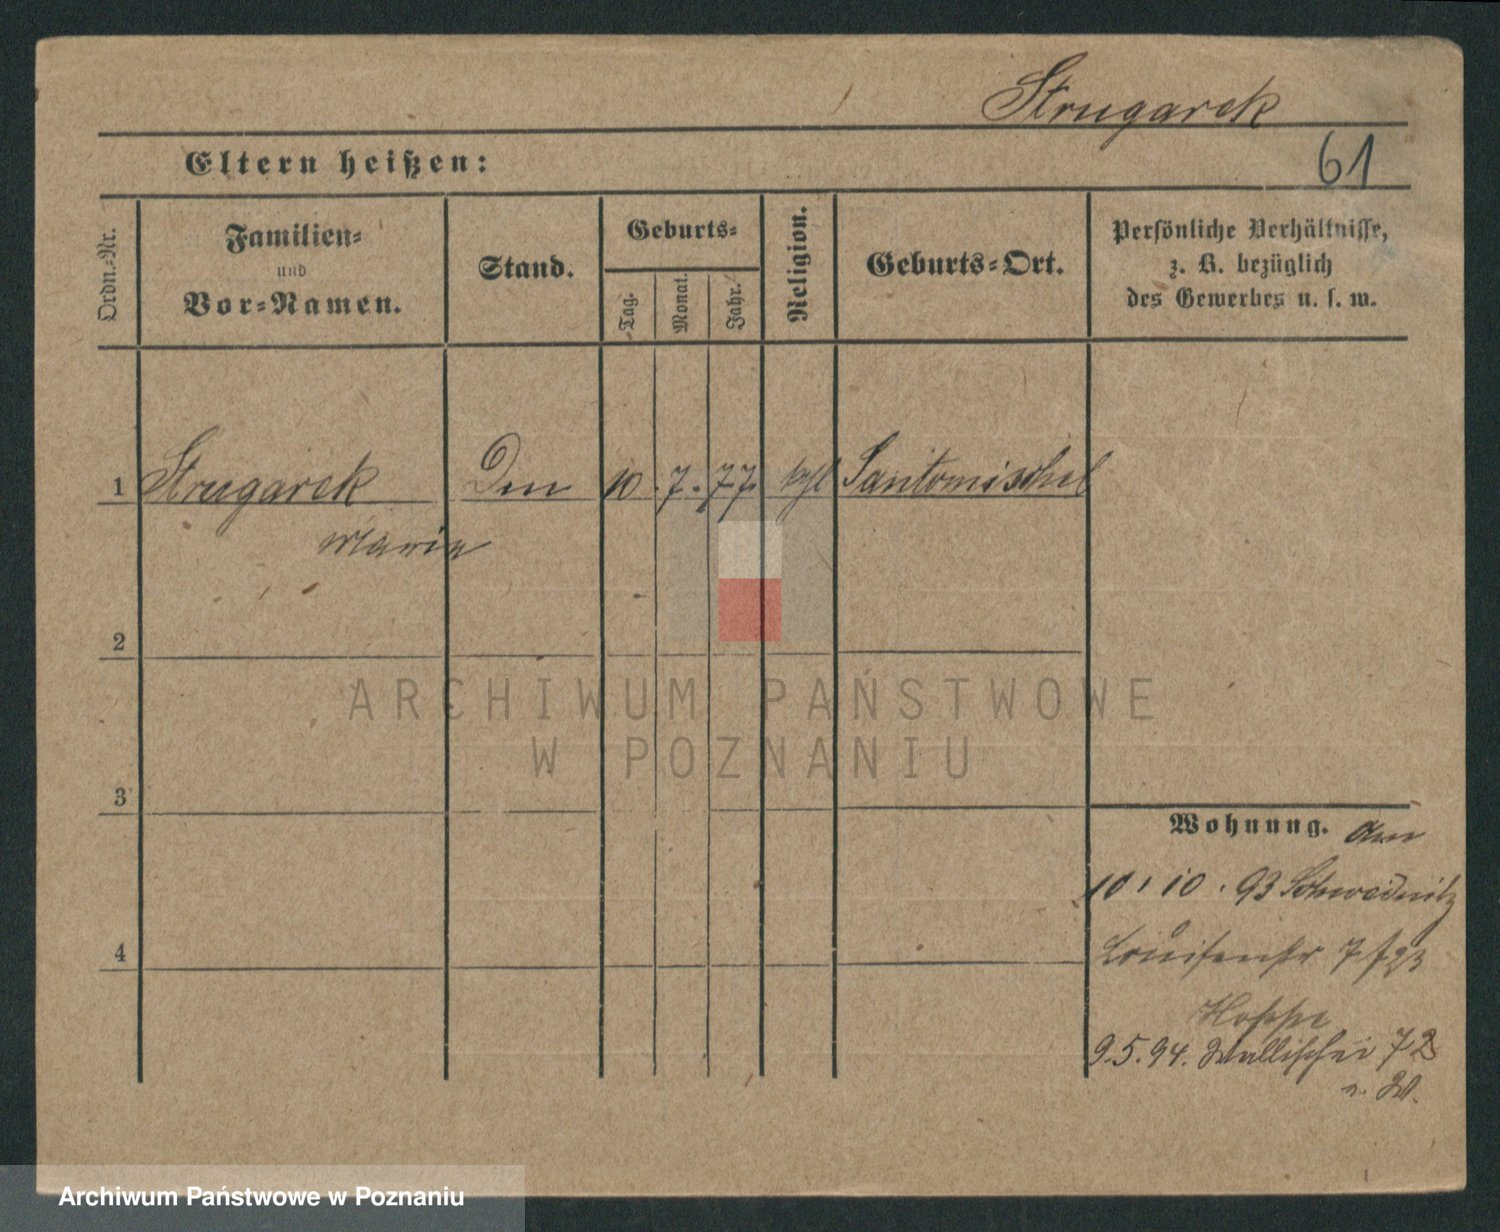 Strugarek
61
Eltern heißen:
Ordn.-Nr.
Familien-
und
Vor-Namen.
Stand.
Geburts-
Tag.
Monat.
Jahr.
Religion.
Geburts-Ort.
Persönliche Verhältnisse,
z. B. bezüglich
des Gewerbes u. s. w.
1 Strugarek 10. 7. 77. kgl Santomischel
Marie
2
3
4
Wohnung.
10. 10. 93 Schweidnitz
Louisenstr 7
Hoppe
9.5.94. Wallischei 72
ARCHIWUM PAŃSTWOWE
W POZNANIU
Archiwum Państwowe w Poznaniu